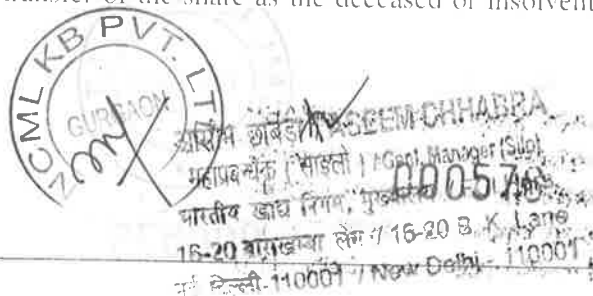 transfer of the share as the deceased or insolvent
NCML KB PVT. LT
GURGAON
आसीम छाबड़ा / ASEEM CHHABRA
महाप्रबन्धक (साइलो) / Genl. Manager (Silo)
भारतीय खाद्य निगम,
00057
16-20 बाराखम्बा लेन / 16-20 B. K. Lane
नई दिल्ली-110001 / New Delhi - 110001